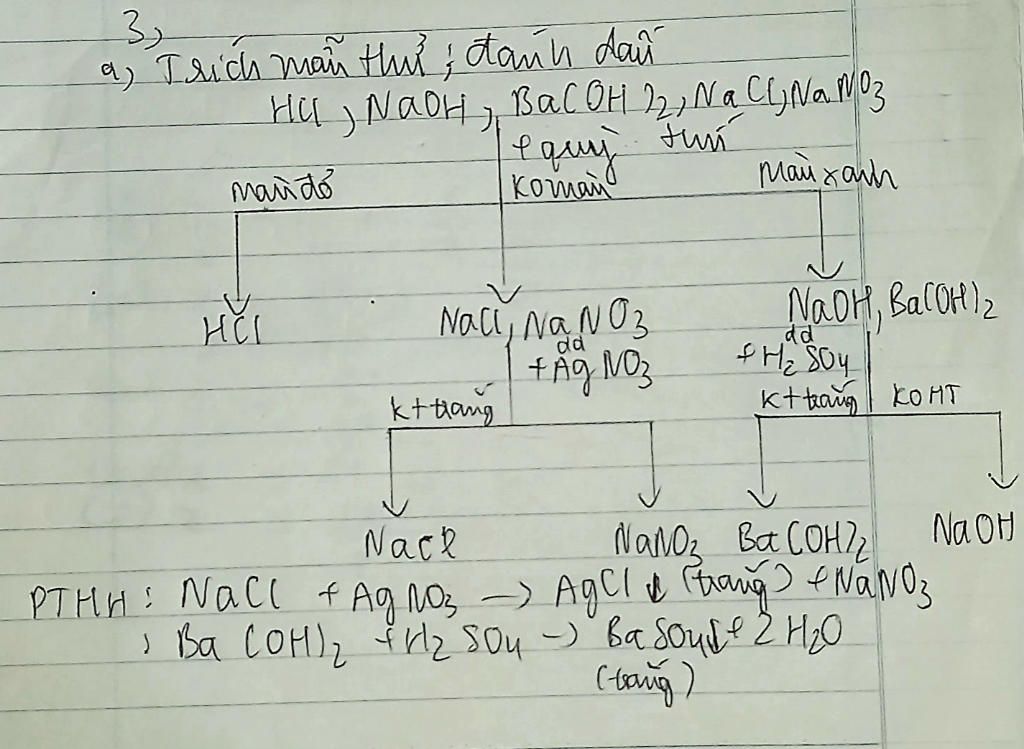 3,
a, Trích mẫu thử, đánh dấu
HCl, NaOH, Ba(OH)2, NaCl, NaNO3
+ quỳ tím
màu đỏ
ko màu
màu xanh
HCl
NaCl, NaNO3
NaOH, Ba(OH)2
dd
+ AgNO3
dd
+ H2SO4
k+ trắng
k+ trắng
KO HT
NaCl
NaNO3
Ba(OH)2
NaOH
PTHH: NaCl + AgNO3 -> AgCl ↓ (trắng) + NaNO3
, Ba(OH)2 + H2SO4 -> BaSO4↓ + 2H2O
(trắng)